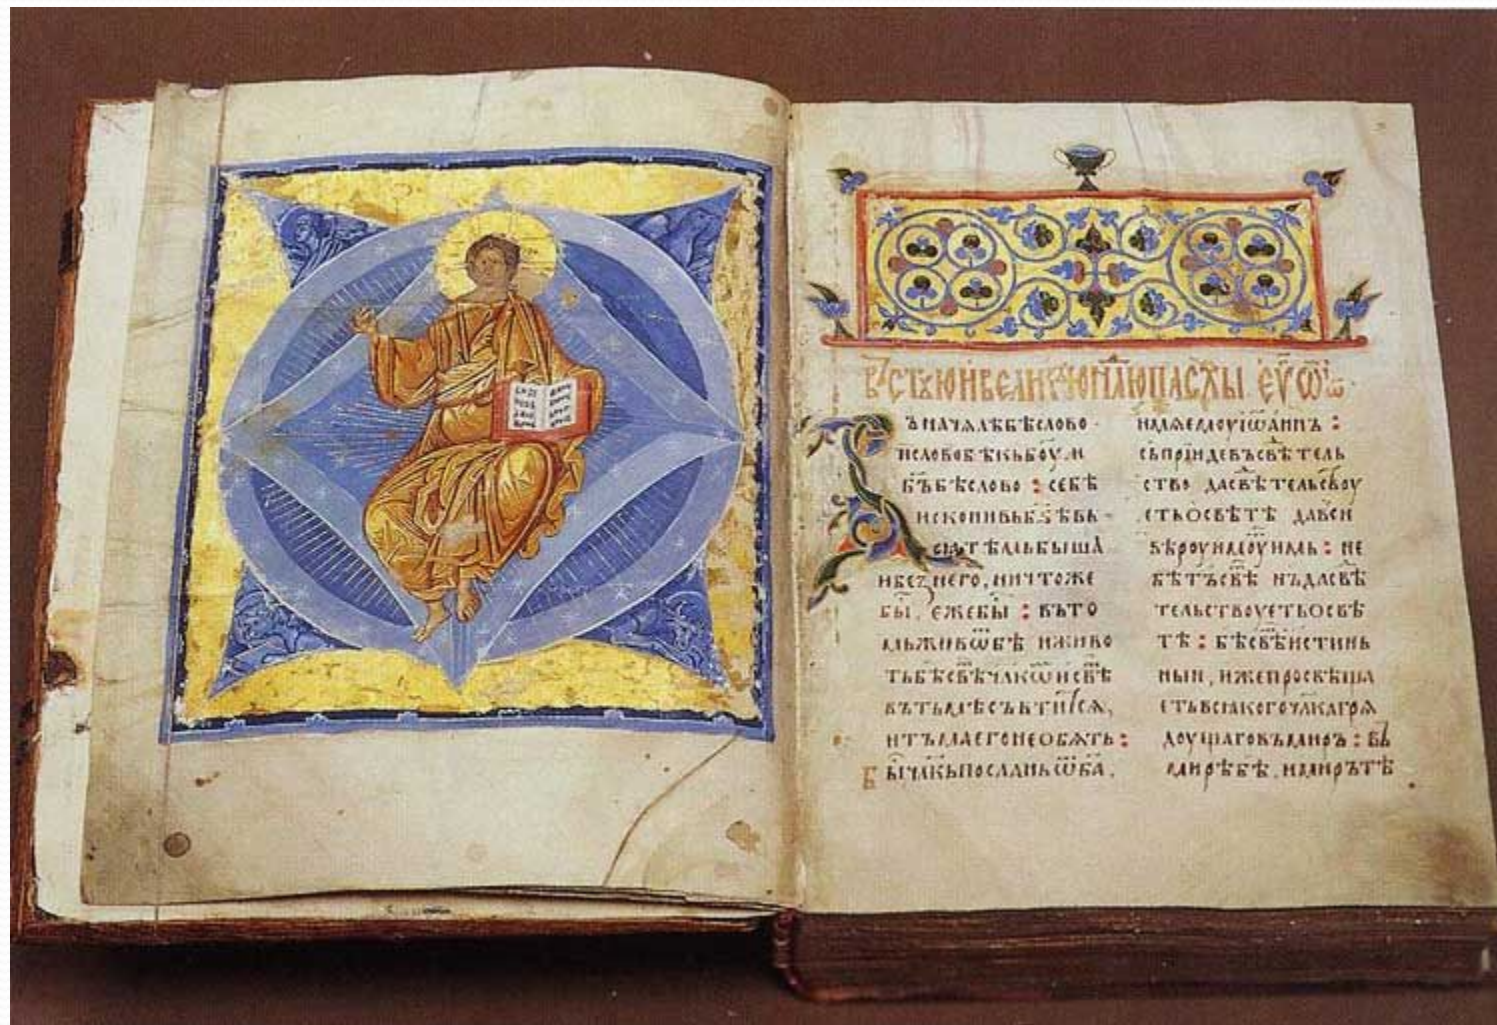 въстꙋюивеликꙋюнⷣлюпасхы еѵⷢ҇ѿ
ъначѧлѣбѣслово·
исловобѣкъбоу·и
бъ҃бѣслово : себѣ
исконивьб҃ѣвь
сѧтѣмьбышѧ
ибезнего, ничтоже
бы҇, ежебы҇ : вьто
мьживѡⷮбѣ иживо
тъбѣсвѣⷮчл҃кѡⷨисвѣⷮ
вътьмѣсвьтитсѧ,
итъмаегонеобѧтъ :
Бы҇чл҃къпосланьѿб҃а,
имѧемоуиѡанпъ :
съпрїидевъсвѣтель
ство дасвѣтельствоу
етьосвѣтѣ давси
вѣроуимоуⷮимь : не
бѣтъсвѣⷮ нъдасвѣ
тельствоуетьосвѣ
тѣ : бѣсвѣⷮистинь
ныи, ижепросвѣща
етьвсꙗкогочл҃кагрѧ
доущаговъмиръ : въ
мирѣбѣ, имирътѣ